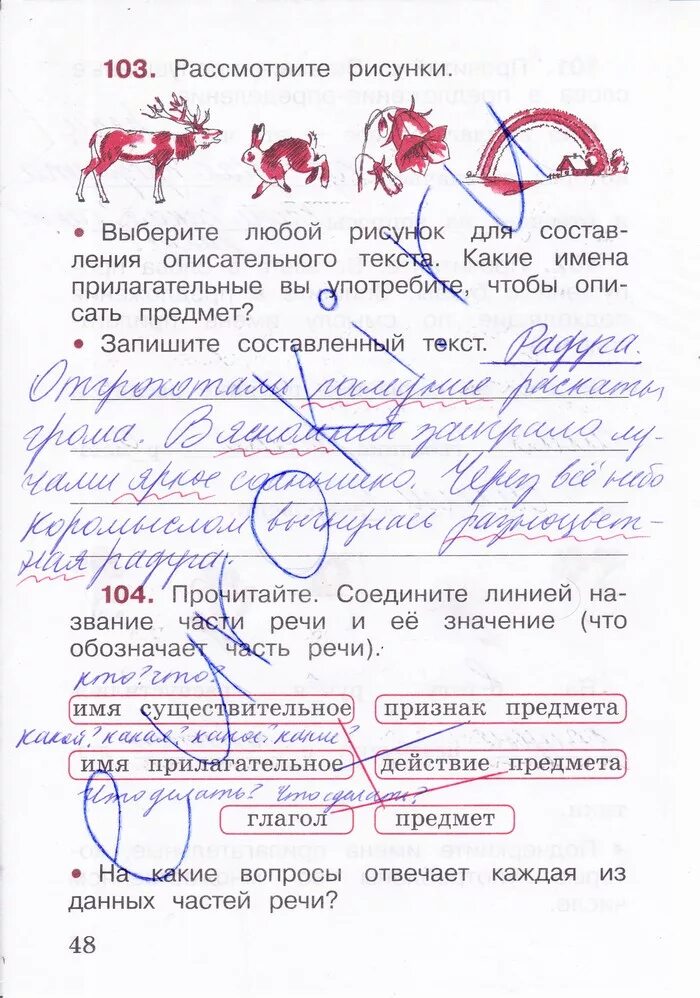 103. Рассмотрите рисунки.
• Выберите любой рисунок для состав-
ления описательного текста. Какие имена
прилагательные вы употребите, чтобы опи-
сать предмет?
• Запишите составленный текст. Радуга.
Отгрохотали последние раскаты
грома. В ясном небе заиграло лу-
чами яркое солнышко. Через всё небо
коромыслом выгнулась разноцвет-
ная радуга.
104. Прочитайте. Соедините линией на-
звание части речи и её значение (что
обозначает часть речи).
кто? что?
имя существительное признак предмета
какой? какая? какое? какие?
имя прилагательное действие предмета
Что делать? Что сделать?
глагол предмет
• На какие вопросы отвечает каждая из
данных частей речи?
48